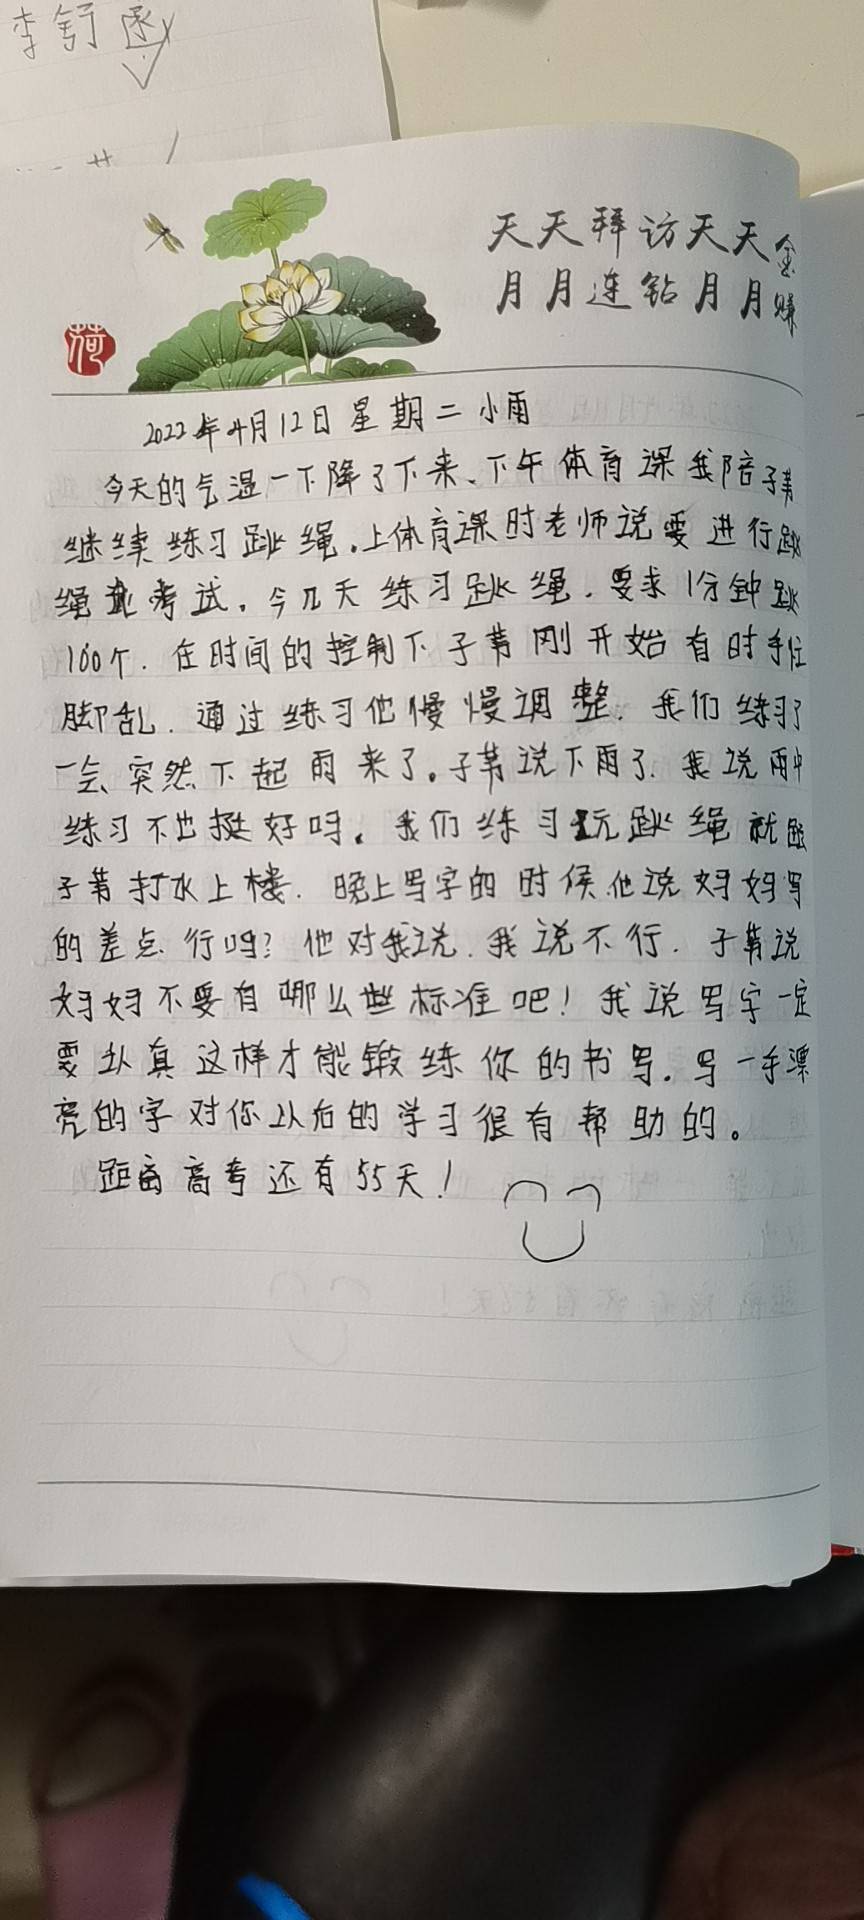 李舒丞
天天拜访天天金
月月连钻月月赚
荷
2022年4月12日星期二 小雨
今天的气温一下降了下来、下午体育课我陪子苇
继续练习跳绳.上体育课时老师说要进行跳
绳考试。今几天练习跳绳.要求1分钟跳
100个.在时间的控制下子苇刚开始有时手忙
脚乱.通过练习他慢慢调整.我们练习了
一会突然下起雨来了。子苇说下雨了.我说雨中
练习不也挺好吗。我们练习玩跳绳就跟
子苇打水上楼.晚上写字的时候他说妈妈写
的差点行吗?他对我说.我说不行.子苇说
妈妈不要有哪么些标准吧!我说写字一定
要认真这样才能锻练你的书写.写一手漂
亮的字对你以后的学习很有帮助的。
距离高考还有55天!